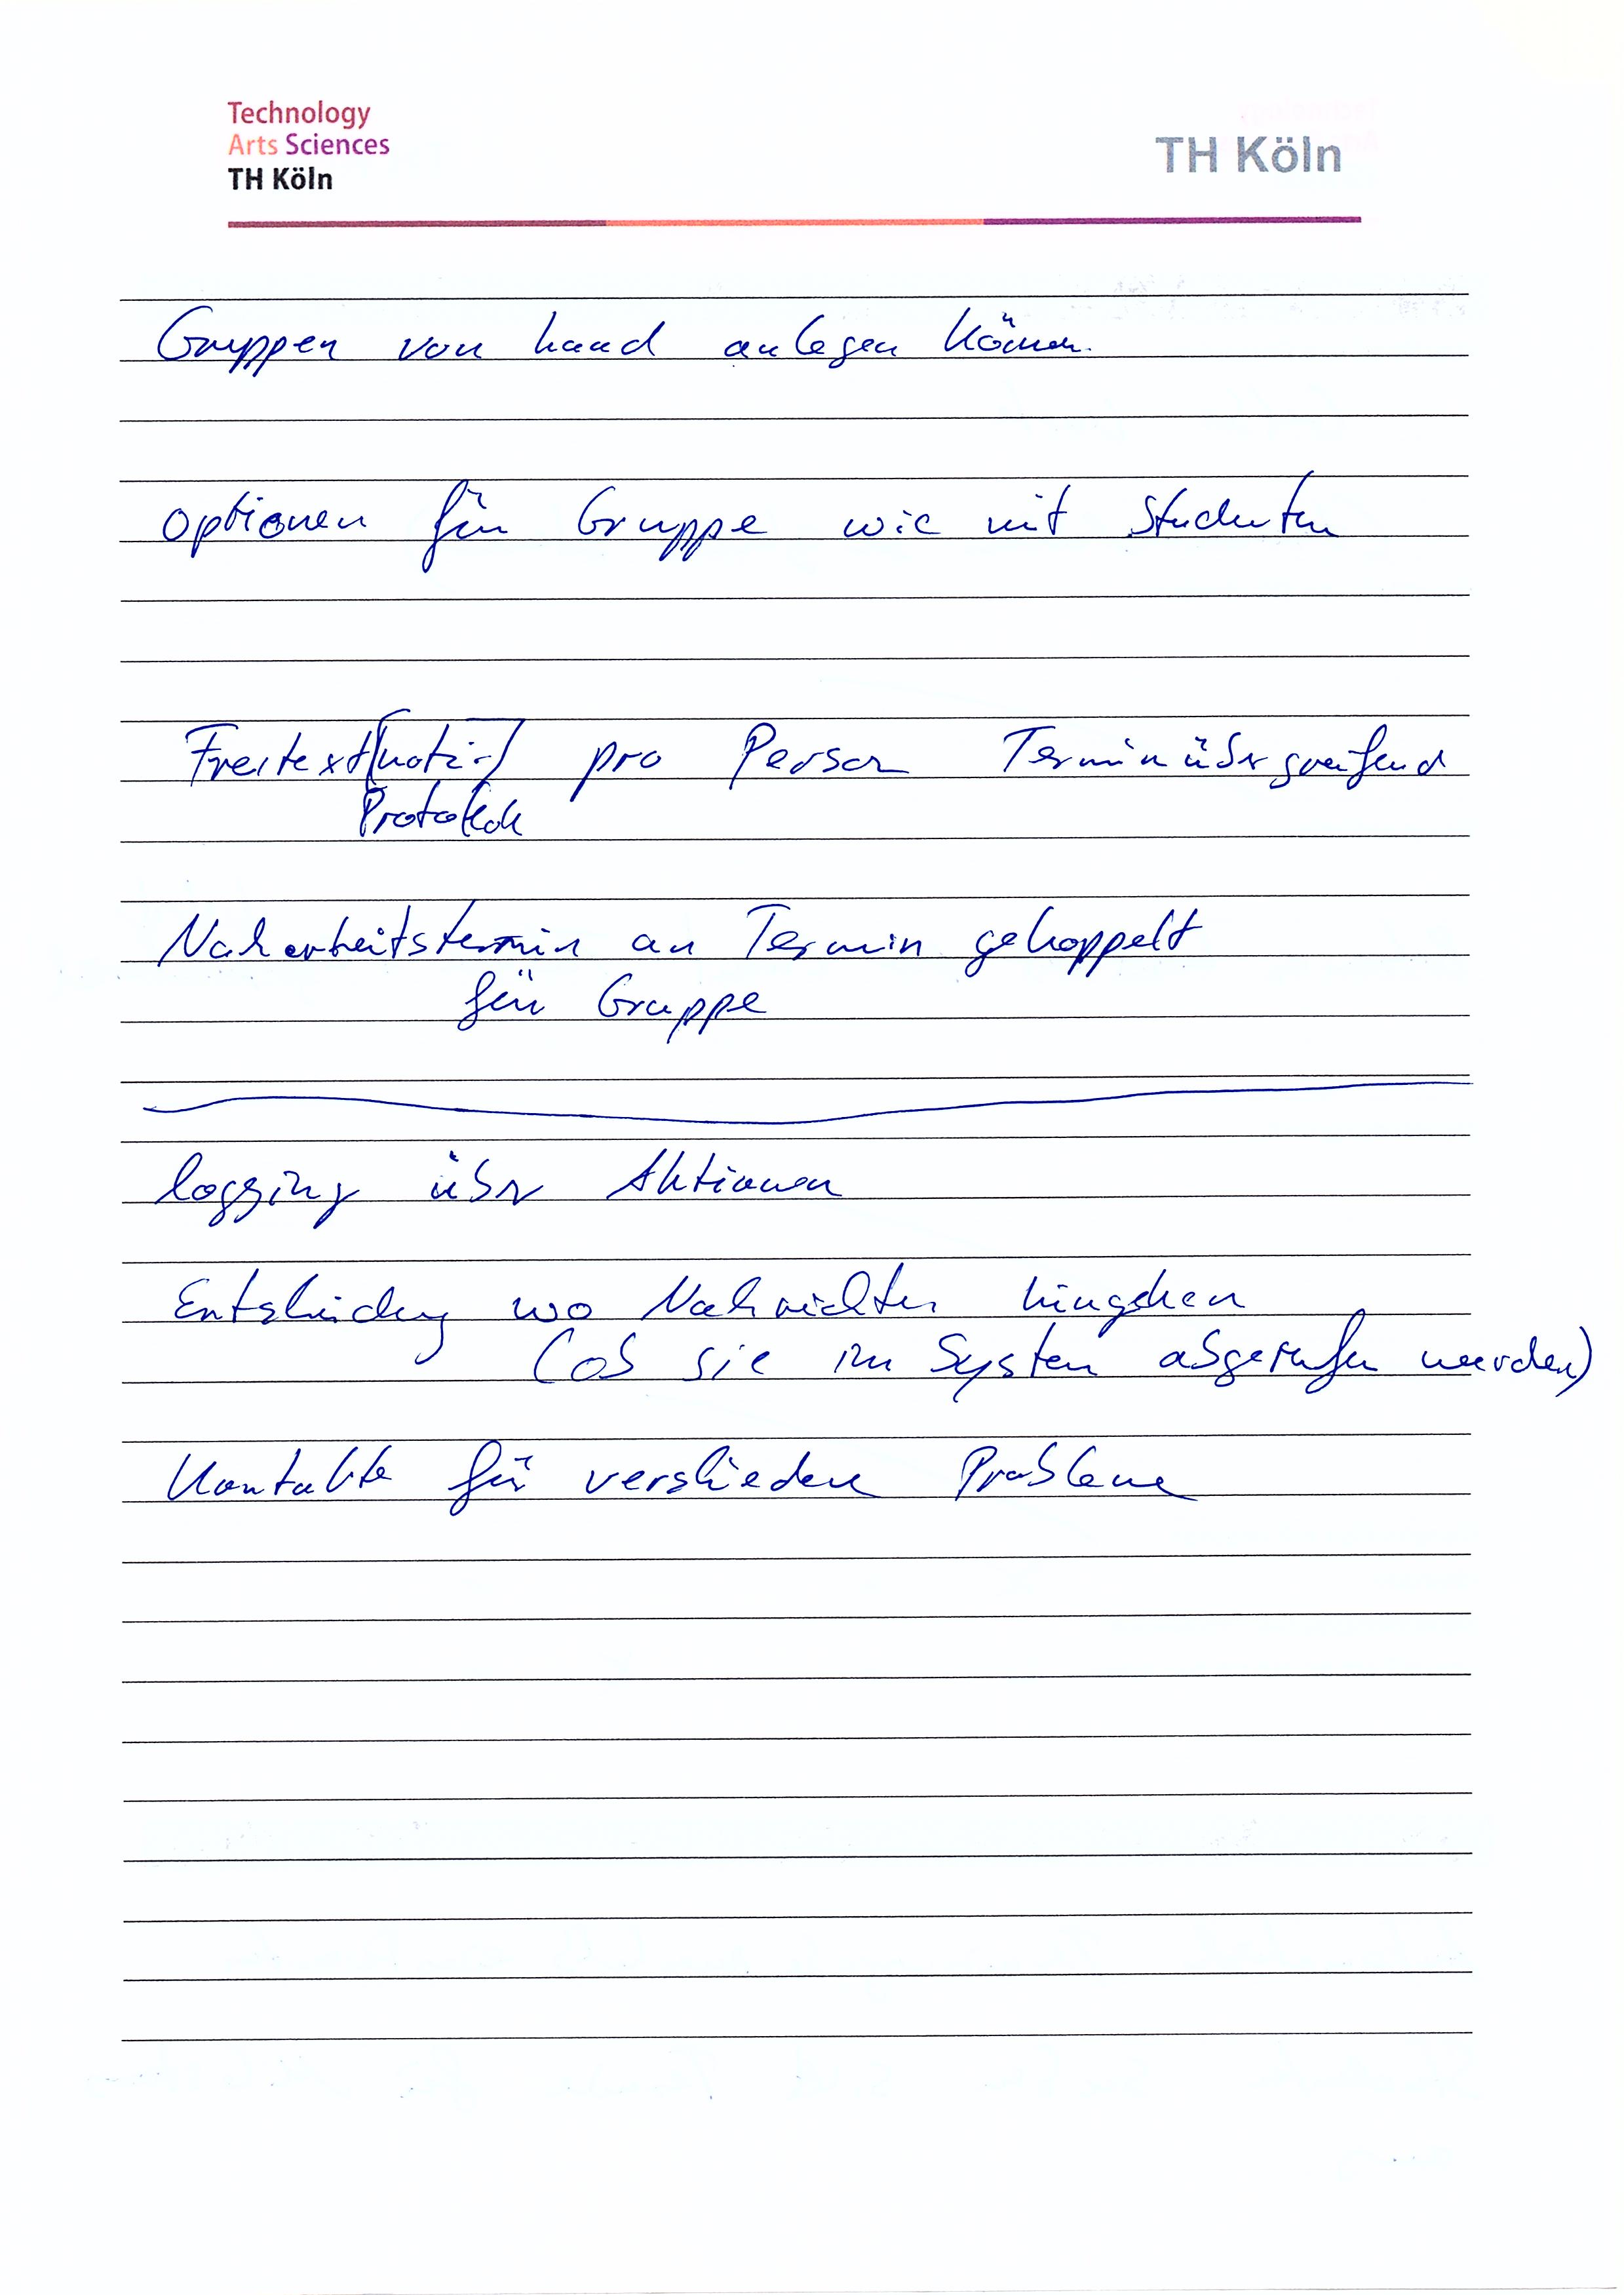 Technology
Arts Sciences
TH Köln
TH Köln
Gruppen von hand anlegen können.
Optionen für Gruppe wie mit Studenten
Freitext/notiz/ pro Person Terminübergreifend
Protokoll
Nacharbeitstermin an Termin gekoppelt
für Gruppe
logging über Aktionen
Entscheidung wo Nachrichten hingehen
(ob sie im System abgerufen werden)
Kontakte für verschiedene Probleme